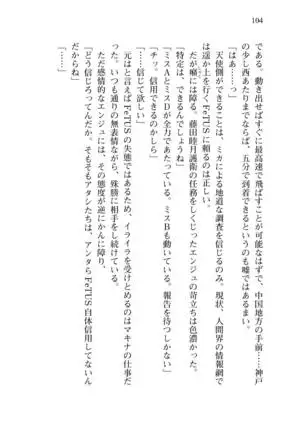 104
である。動き出せばすぐに最高速で飛ばすことが可能なはずで、中国地方の手前……神戸
の少し西あたりまでならば、五分で到着できるというのも嘘ではあるまい。
「はぁ……」
天使側ができることは、ミカによる地道な調査を信じるのみ。現状、人間界の情報網で
は遥か上を行くFeTUSに頼るのは正しい。
だが噂には障る。藤田睦月護衛の任務をしくじったエンジュの苛立ちは色濃かった。
「特定は、できるんでしょうね」
「ミスAとミスDが全力であたっている。ミスBも動いている。報告を待つしかない」
「チッ。信用できるのかしら」
「……信じて欲しい」
元はと言えばFeTUSの失態ではあるため、イライラを受けとめるのはマキナの仕事だ
った。いつも通りの無表情ながら、殊勝に相手をし続けている。
ただ感情的なエンジュには、その態度が逆にかんに障り、
「どう信じろってんだか。そもそもアタシたちは、アンタらFeTUS自体信用してないん
だからね」
「……」